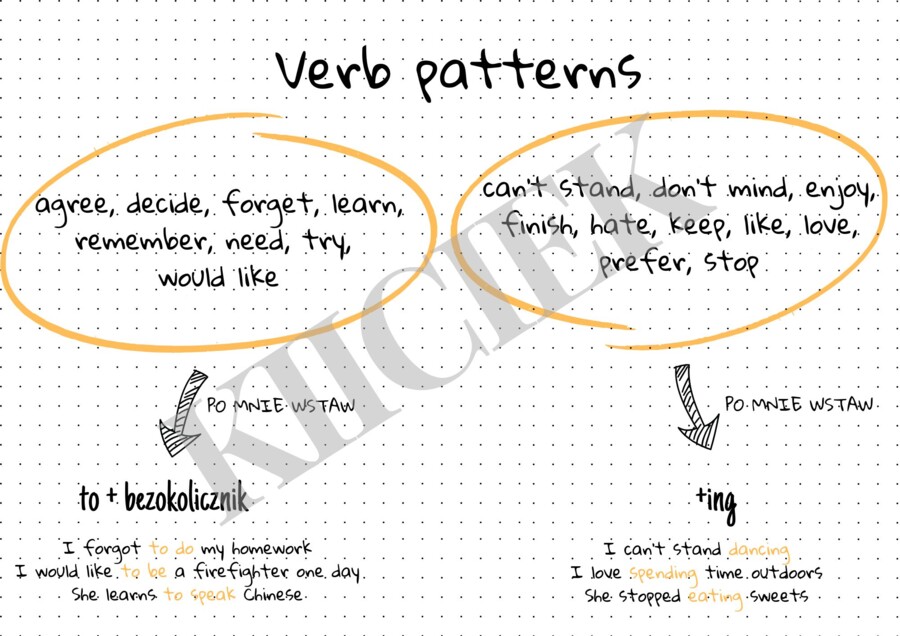 Verb patterns
agree, decide, forget, learn,
remember, need, try,
would like
can't stand, don't mind, enjoy,
finish, hate, keep, like, love,
prefer, stop
KIICIEK
PO MNIE WSTAW
PO MNIE WSTAW
to + bezokolicznik
I forgot to do my homework
I would like to be a firefighter one day
She learns to speak Chinese
+ing
I can't stand dancing
I love spending time outdoors
She stopped eating sweets